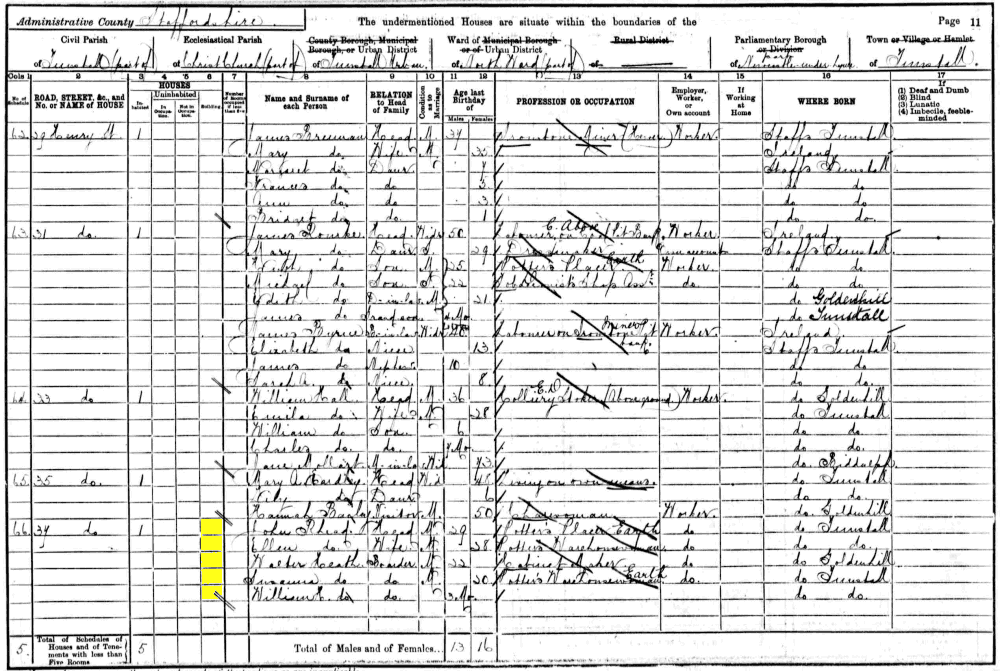 Administrative County Staffordshire The undermentioned Houses are situate within the boundaries of the Page 11
Civil Parish Ecclesiastical Parish County Borough, Municipal Borough, or Urban District Ward of Municipal Borough or of Urban District Rural District Parliamentary Borough or Division Town or Village or Hamlet
of Tunstall (part of) of Christ Church (part of) of Tunstall Urban of North Ward (part of) of of Newcastle under Lyme of Tunstall
Cols 1 2 3 4 5 6 7 8 9 10 11 12 13 14 15 16 17
No. of Schedule ROAD, STREET, &c., and No. or NAME of HOUSE HOUSES Inhabited Uninhabited In Occupation Not in Occupation Building Number of Rooms occupied if less than five Name and Surname of each Person RELATION to Head of Family Condition as to Marriage Age last Birthday of Males Females PROFESSION OR OCCUPATION Employer, Worker, or Own account If Working at Home WHERE BORN If (1) Deaf and Dumb (2) Blind (3) Lunatic (4) Imbecile, feeble-minded
62 29 Henry St 1 James Head M 39 Ironstone Miner (Hewer) Worker Staffs Tunstall
Mary do Wife M 35 Ireland
Margaret do Daur 7 Staffs Tunstall
Frances do do 5 do do
Ann do do 3 do do
Bridget do do 1 do do
63 31 do 1 James Rourke Head Widr 50 Worker Ireland
Mary do Daur S 29 Dressmaker Own account Staffs Tunstall
do Son M 25 Potter's Placer Earth Worker do do
do Son S 22 do do do
Edith do D-in-law M 21 do Goldenhill
James do Grandson Mo do Tunstall
James Byrne B-in-law Widr Worker Ireland
Elizabeth do Niece 13 Staffs Tunstall
James do Nephew 10 do do
Sarah A. do Niece 8 do do
64 33 do 1 William Hall Head M 36 Colliery Stoker (Above ground) Worker do Goldenhill
do Wife M 28 do Tunstall
William do Son 6 do do
Charles do do 7 Mo do do
M-in-law Wid 73 do Biddulph
65 35 do 1 Mary A. Head Wid 48 Living on own means do Tunstall
do Daur 6 do do
Hannah Visitor M 50 Charwoman Worker do Goldenhill
66 37 do 1 John Rhead Head M 29 Potter's Placer Earth do do Tunstall
Ellen do Wife M 28 Potter's Warehousewoman do do do
Walter Heath Boarder M 22 Cabinet Maker do do Goldenhill
Susanna do do M 20 Potter's Warehousewoman Earth do do Tunstall
William E. do do 3 Mo do do
5 Total of Schedules of Houses and of Tenements with less than Five Rooms 5 Total of Males and of Females... 13 16